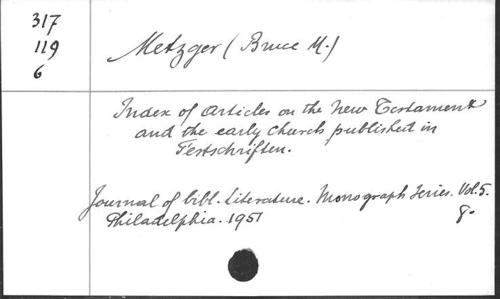 317
119
6
Metzger (Bruce M.)
Index of articles on the New Testament
and the early church published in
Festschriften.
Journal of bibl. Literature. Monograph Series. Vol. 5.
Philadelphia. 1951 8o